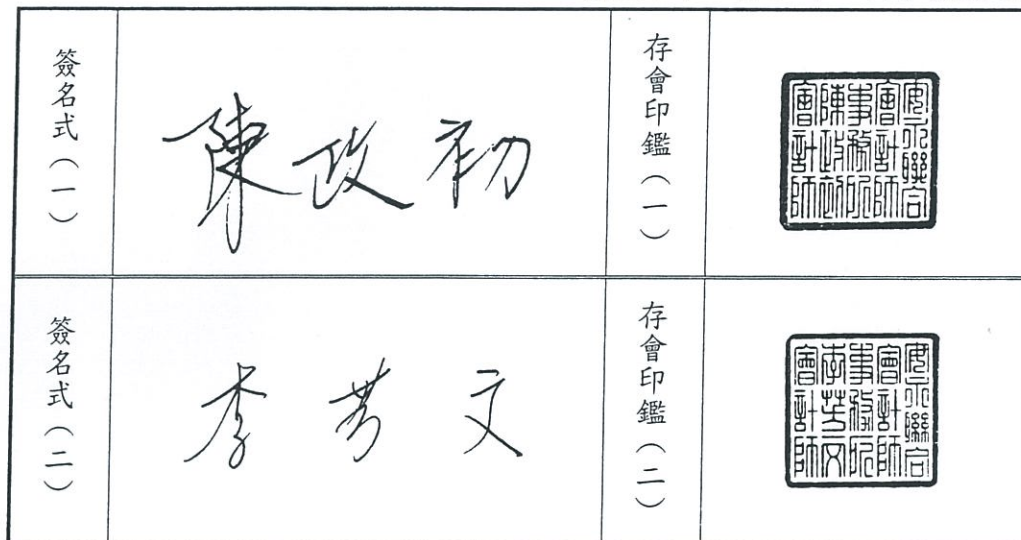 簽名式（一）
陳政初
存會印鑑（一）
安永聯合
會計師
事務所
陳政初
會計師
簽名式（二）
李芳文
存會印鑑（二）
安永聯合
會計師
事務所
李芳文
會計師